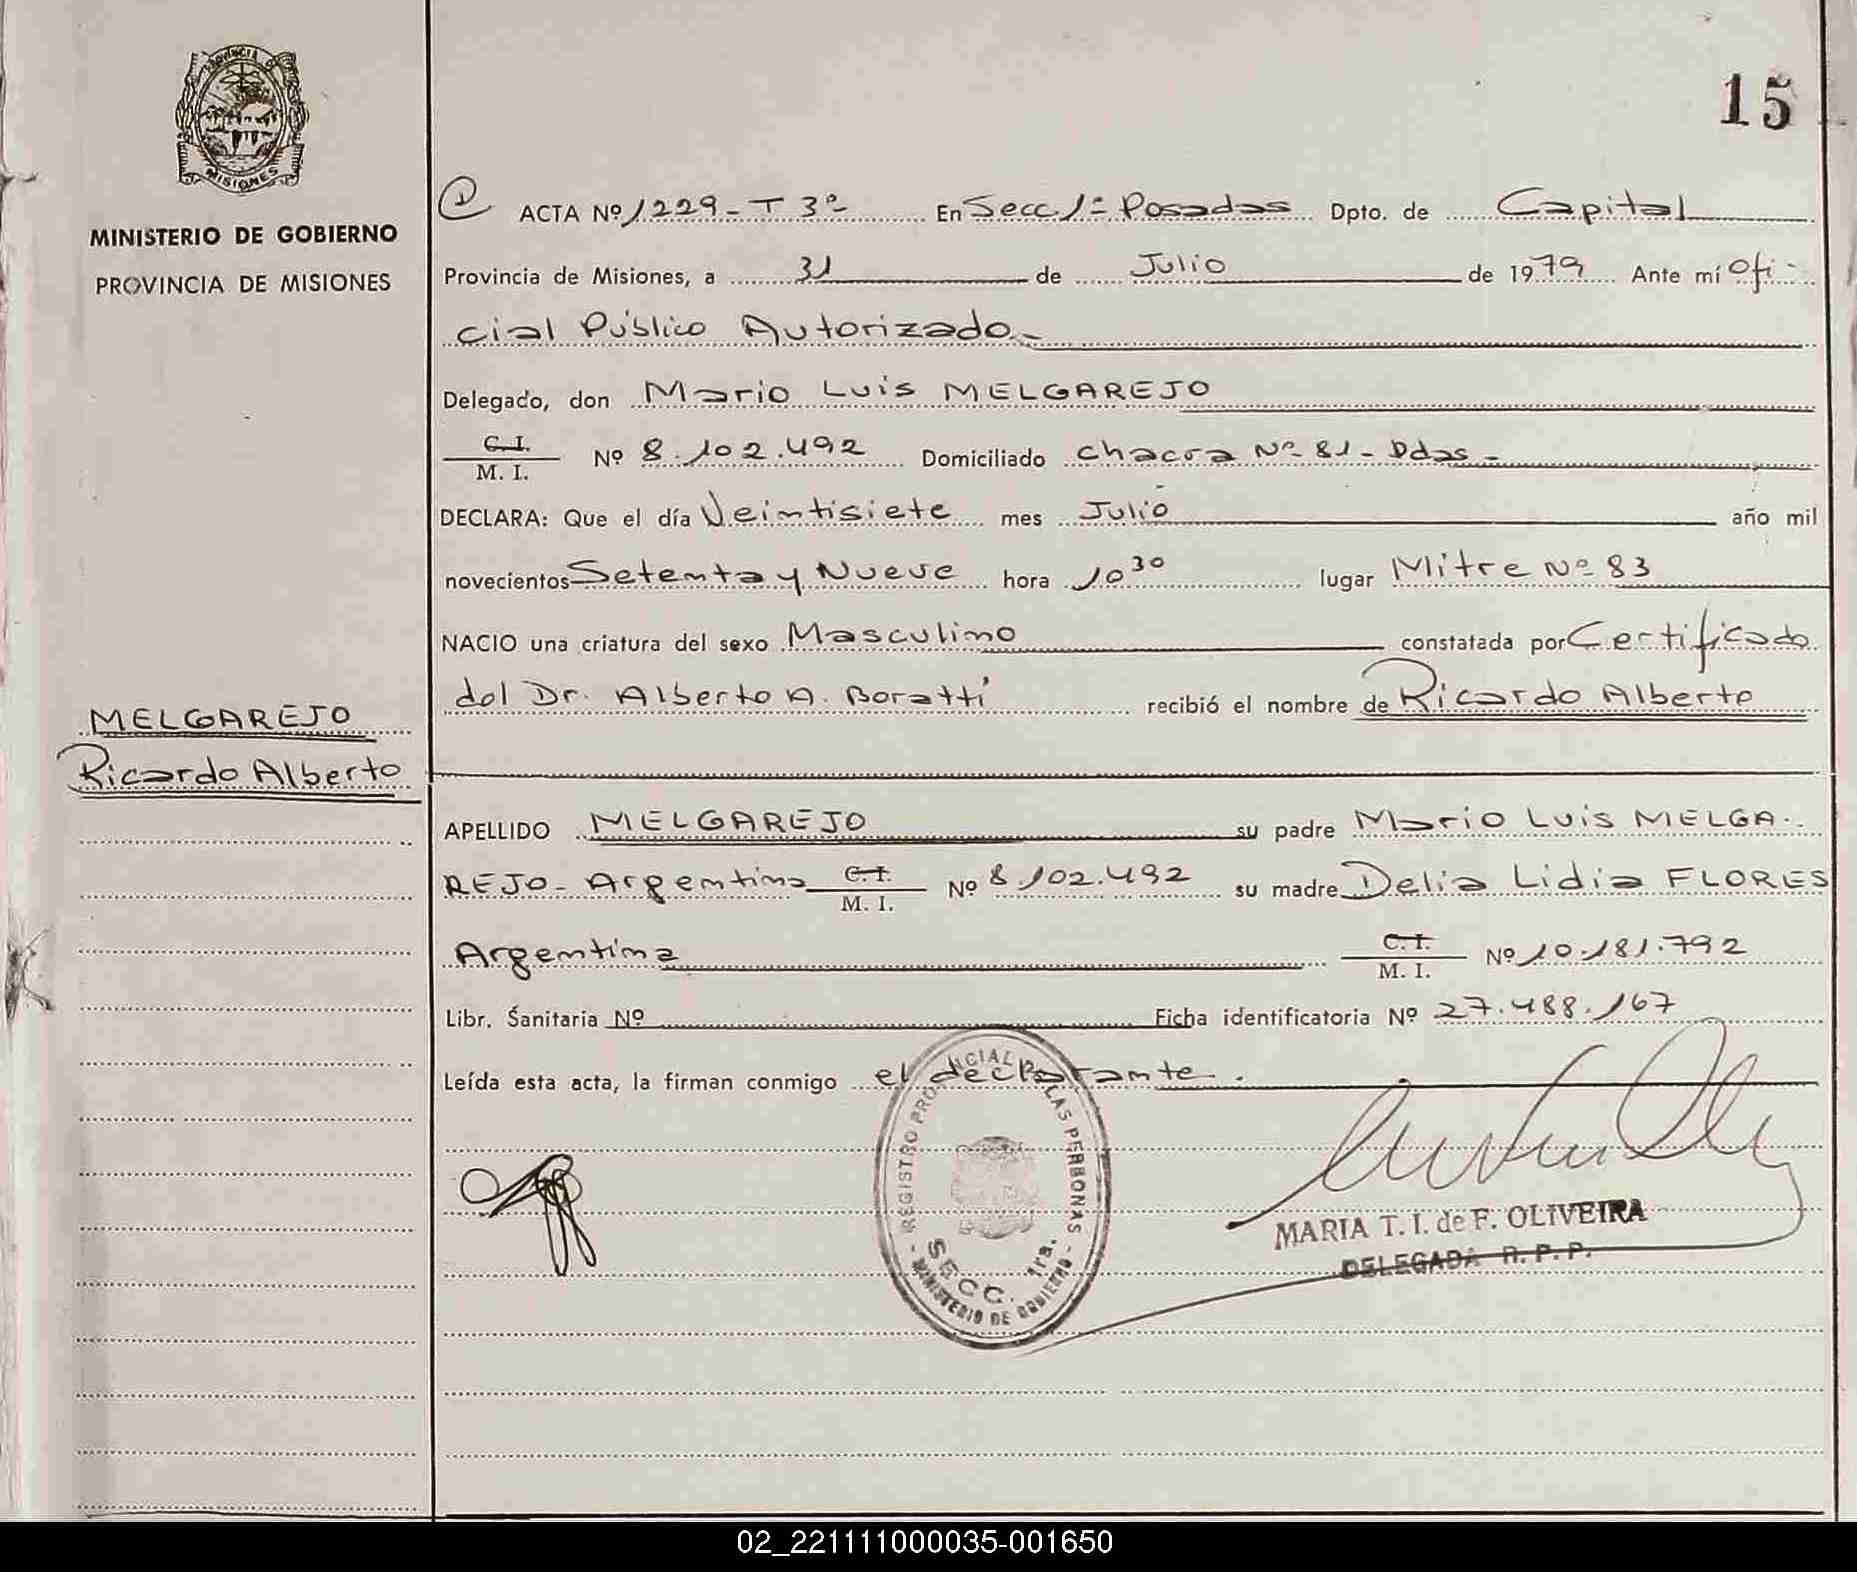 PROVINCIA DE
MISIONES
MINISTERIO DE GOBIERNO
PROVINCIA DE MISIONES
MELGAREJO
Ricardo Alberto
15
ACTA Nº 1229 - T 3º En Secc 1ª Posadas Dpto. de Capital
Provincia de Misiones, a 31 de Julio de 1979 Ante mí Ofi-
cial Público Autorizado.-
Delegado, don Mario Luis MELGAREJO
C.I.
M. I. Nº 8.102.492 Domiciliado Chacra Nº 81 - Pdas -
DECLARA: Que el día Veintisiete mes Julio año mil
novecientos Setenta y Nueve hora 10 30 lugar Mitre Nº 83
NACIO una criatura del sexo Masculino constatada por Certificado
del Dr. Alberto A. Boratti recibió el nombre de Ricardo Alberto
APELLIDO MELGAREJO su padre Mario Luis MELGA-
REJO - Argentino C.I. M. I. Nº 8.102.492 su madre Delia Lidia FLORES
Argentina C.I. M. I. Nº 10.181.792
Libr. Sanitaria Nº Ficha identificatoria Nº 27.488.167
Leída esta acta, la firman conmigo el declarante.
- REGISTRO PROVINCIAL DE LAS PERSONAS -
SECC. 1ra.
MINISTERIO DE GOBIERNO
MARIA T. I. de F. OLIVEIRA
DELEGADA R. P. P.
02_221111000035-001650